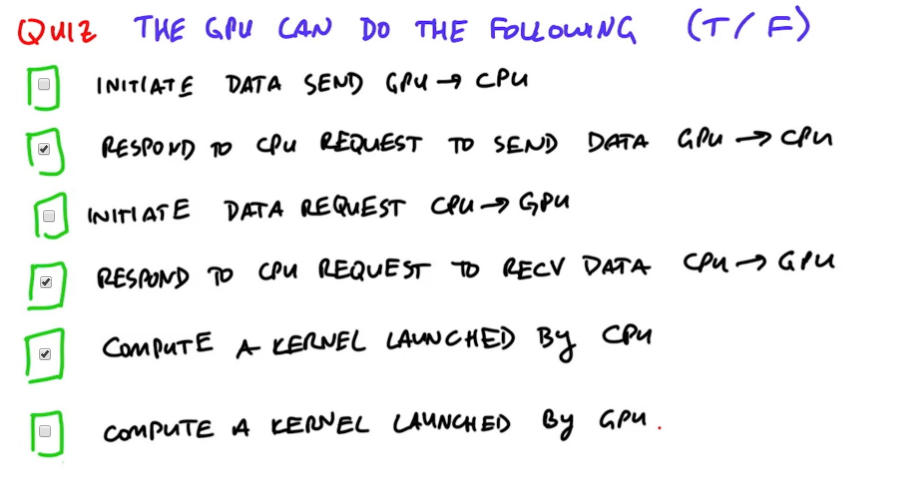 QUIZ THE GPU CAN DO THE FOLLOWING (T/F)
INITIATE DATA SEND GPU → CPU
RESPOND TO CPU REQUEST TO SEND DATA GPU → CPU
INITIATE DATA REQUEST CPU → GPU
RESPOND TO CPU REQUEST TO RECV DATA CPU → GPU
COMPUTE A KERNEL LAUNCHED BY CPU
COMPUTE A KERNEL LAUNCHED BY GPU.